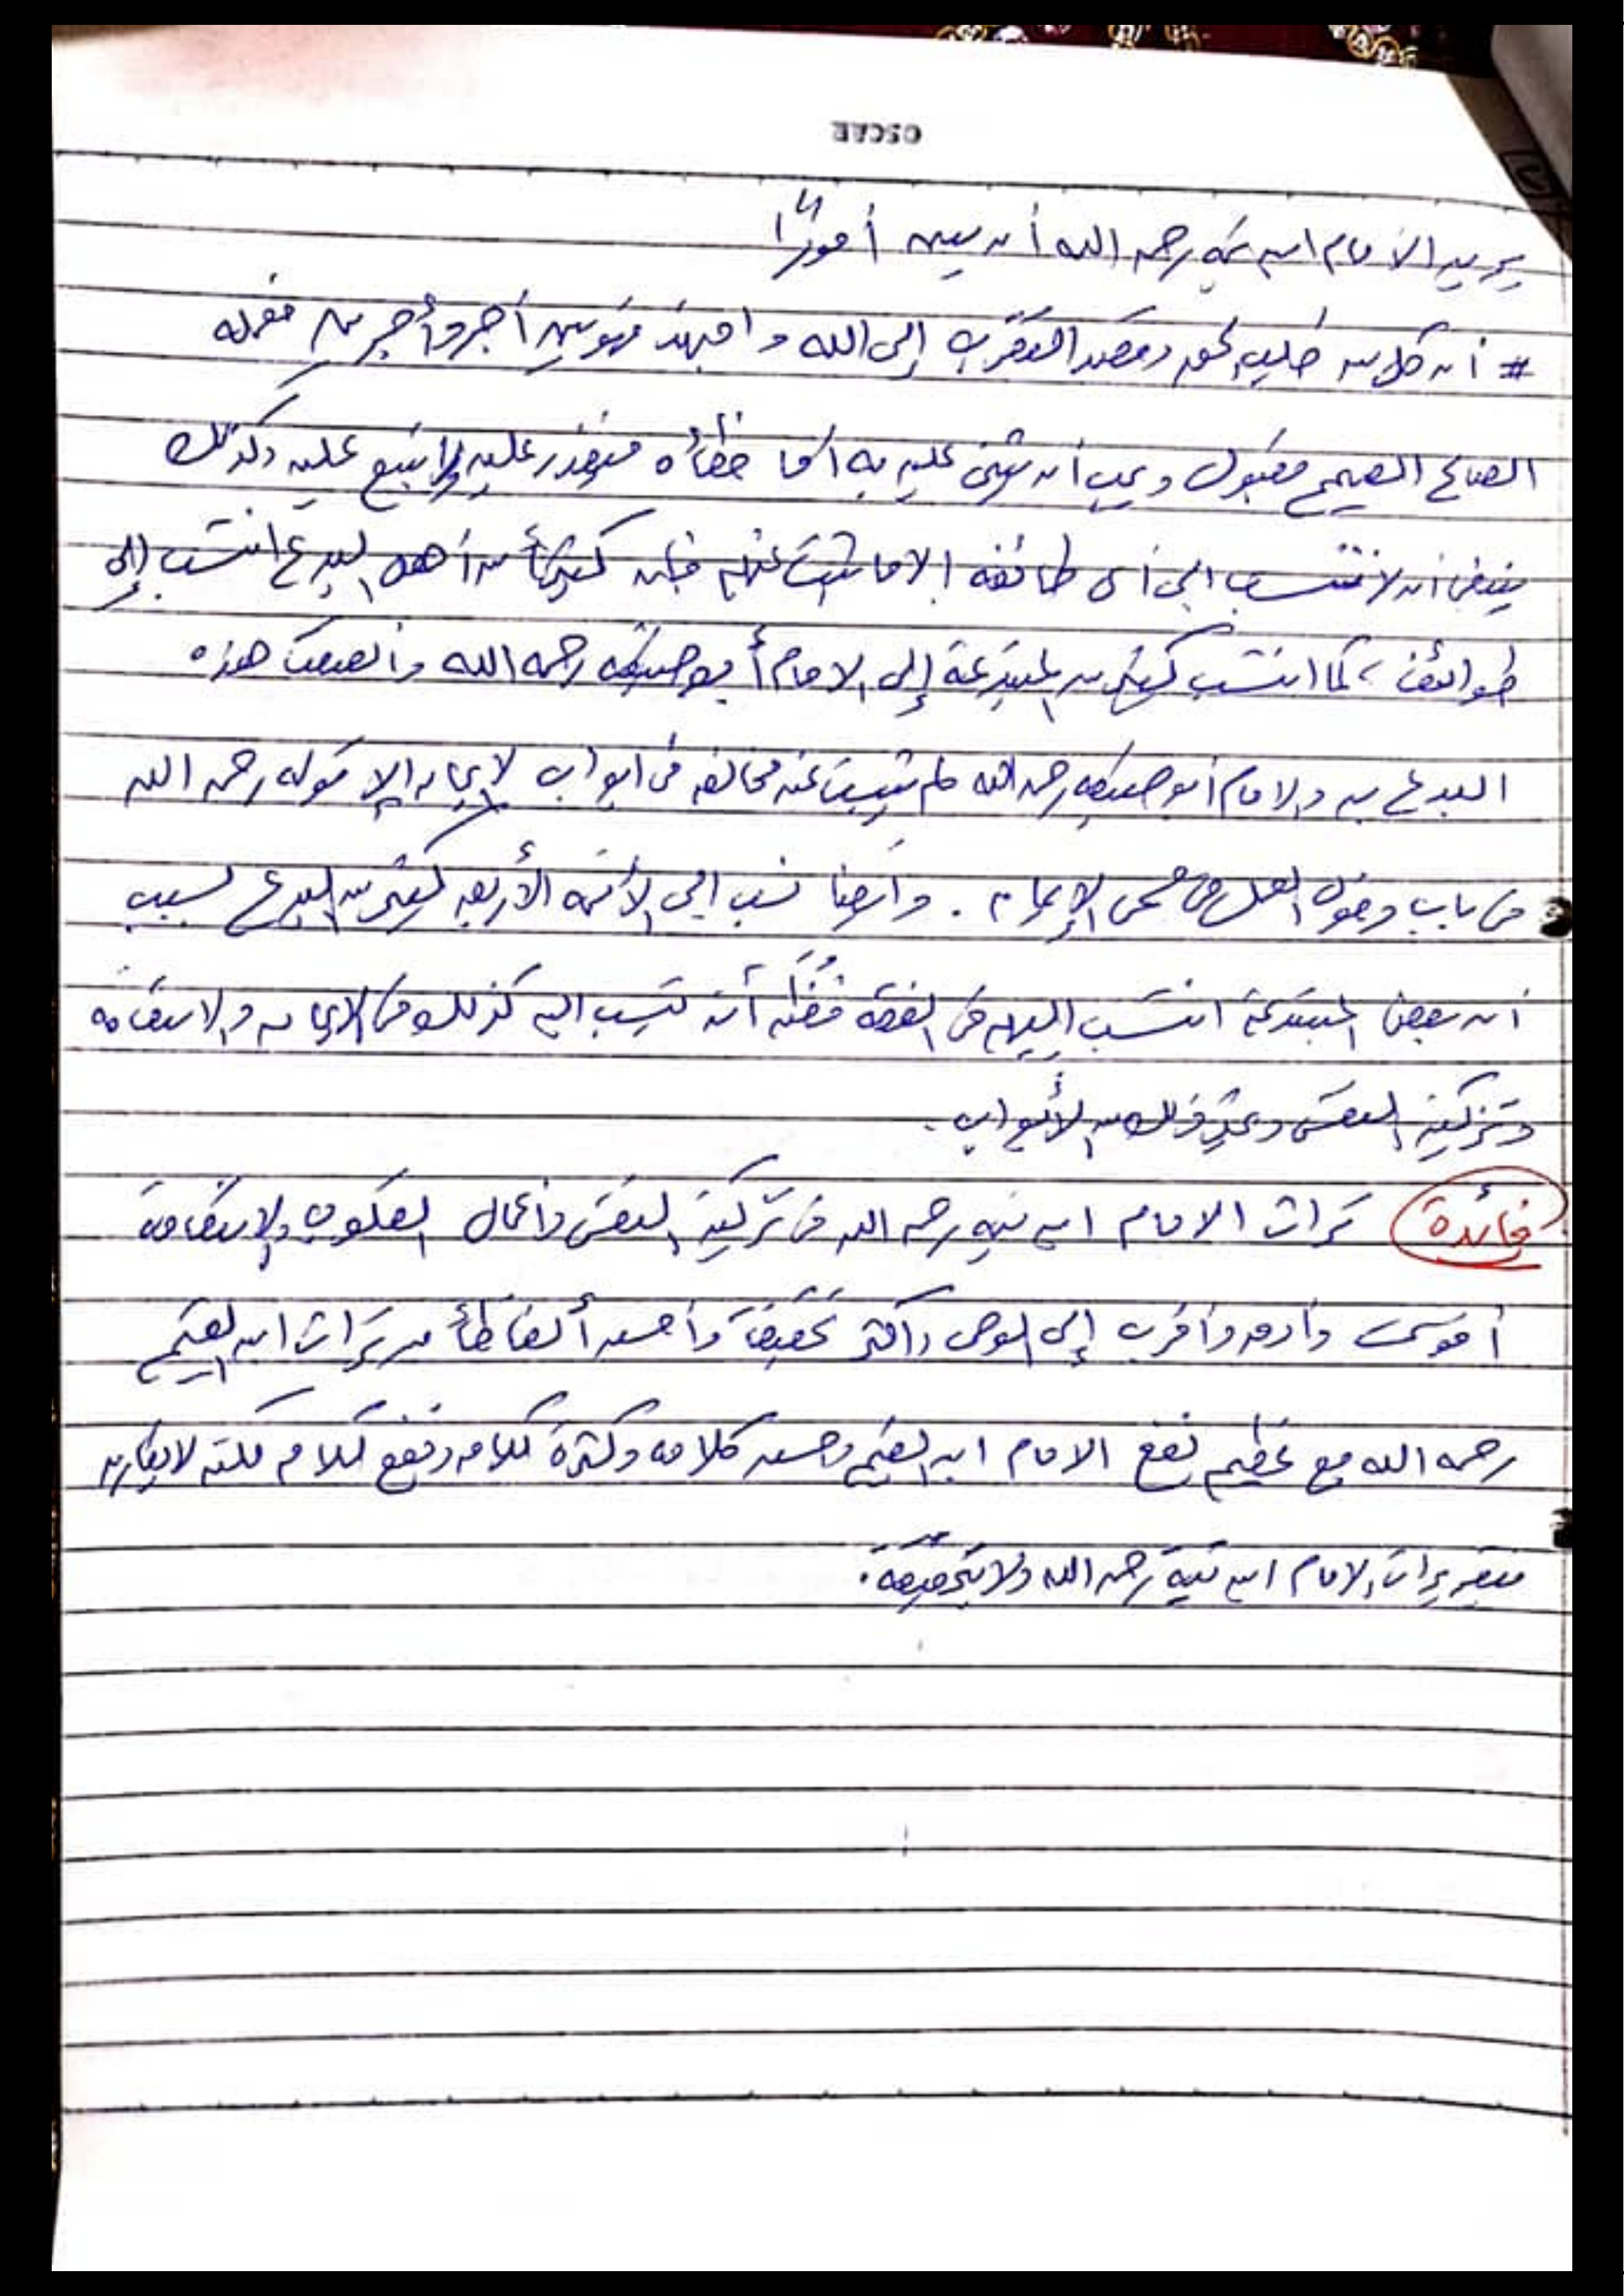 OSCAR
يريد الامام ابن تيمية رحمه الله أن يبين أمورًا
# أن كل من طلب الحق وقصد التقرب إلى الله واجتهد فهو بين أجر وأجرين فعمله
الصالح الصحيح مقبول ويجب أن يثنى عليه به أما خطأه فيعذر عليه ولا يتبع عليه وكذلك
ينبغى أن لا ننسب الى أى طائفه الا ما ثبت عنهم فإن كثيرًا من أهل البدع انتسب إلى
طوائف، كما انتسب كثير من المبتدعة إلى الامام أبو حنيفه رحمه الله وألصقت هذه
البدع به والامام أبو حنيفه رحمه الله لم تثبت عنه مخالفه فى ابواب الايمان إلا قوله رحمه الله
فى باب دخول العمل فى مسمى الإيمان. وأيضا نسب الى الأئمه الأربعه كثير من البدع لسبب
أن بعض المبتدعة انتسب إليهم فى الفقه فظُن أنه ينتسب اليهم كذلك فى الايمان والاستقامه
وتزكية النفس وغير ذلك من الأبواب.
فائدة تراث الامام ابن تيميه رحمه الله فى تزكية النفس وأعمال القلوب والإستقامة
أقوى وأدق وأقرب إلى الوحى وأكثر تحقيقًا وأحسن ألفاظًا من تراث ابن القيم
رحمه الله مع عظيم نفع الامام ابن القيم وحسن كلامه وكثرة كلامه ونفع كلامه لكنه لا يقارن
بتقريرات الامام ابن تيمية رحمه الله ولا بتحقيقه.